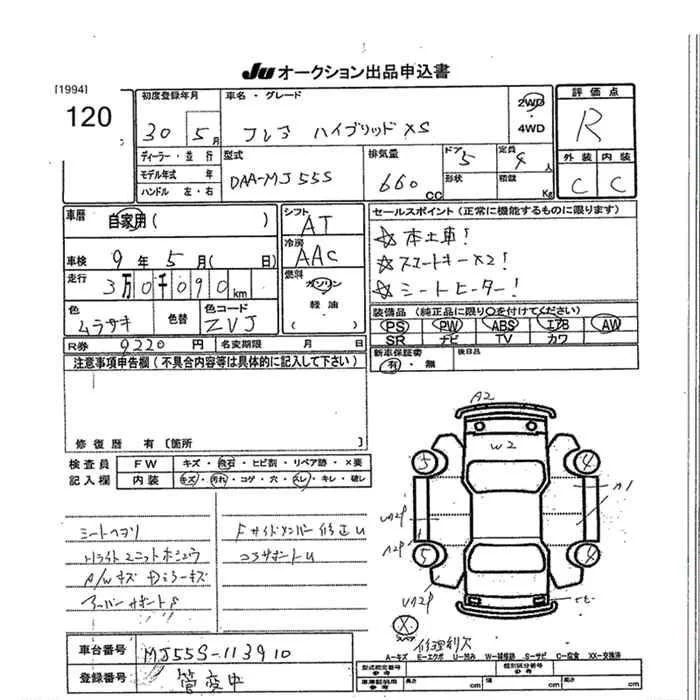 JU オークション出品申込書
[1994]
120
初度登録年月
30 5月
車名・グレード
フレア ハイブリッドXS
2WD
4WD
評価点
R
ディーラー・並行
モデル年式 年
ハンドル 左・右
型式
DAA-MJ55S
排気量
660 CC
ドア
5
定員
4人
形状
積載
Kg
外装 内装
C C
車歴
自家用( )
シフト
AT
セールスポイント(正常に機能するものに限ります)
☆本土車!
☆スマートキー×2!
☆シートヒーター!
車検 9年5月( 日)
冷房
AAC
走行
3万0千090km
燃料
ガソリン
軽油
色
ムラサキ
色替
色コード
ZVJ
装備品(純正品に限り○を付けてください)
PS PW ABS エアB AW
SR ナビ TV カワ
R券 9220円
名変期限 月 日
新車保証書
有・無
後日品
注意事項申告欄(不具合内容等は具体的に記入して下さい)
修復歴 有〔箇所 〕
検査員
記入欄
FW キズ・飛石・ヒビ割・リペア跡・×要
内装 キズ・汚れ・コゲ・穴・スレ・キレ・破レ
シートヘタリ
Fサイドメンバー修正U
コアサポートU
A/Wキズ Dミラーキズ
A2
W2
5 4
A1
5 4
スペア
車台番号
MJ55S-113910
登録番号
管変中
A-キズ E-エクボ U-凹み W-補修跡 S-サビ C-腐食 XX-交換済
型式指定番号
参考
類別区分番号
参考
長さ cm
幅 cm
高さ cm